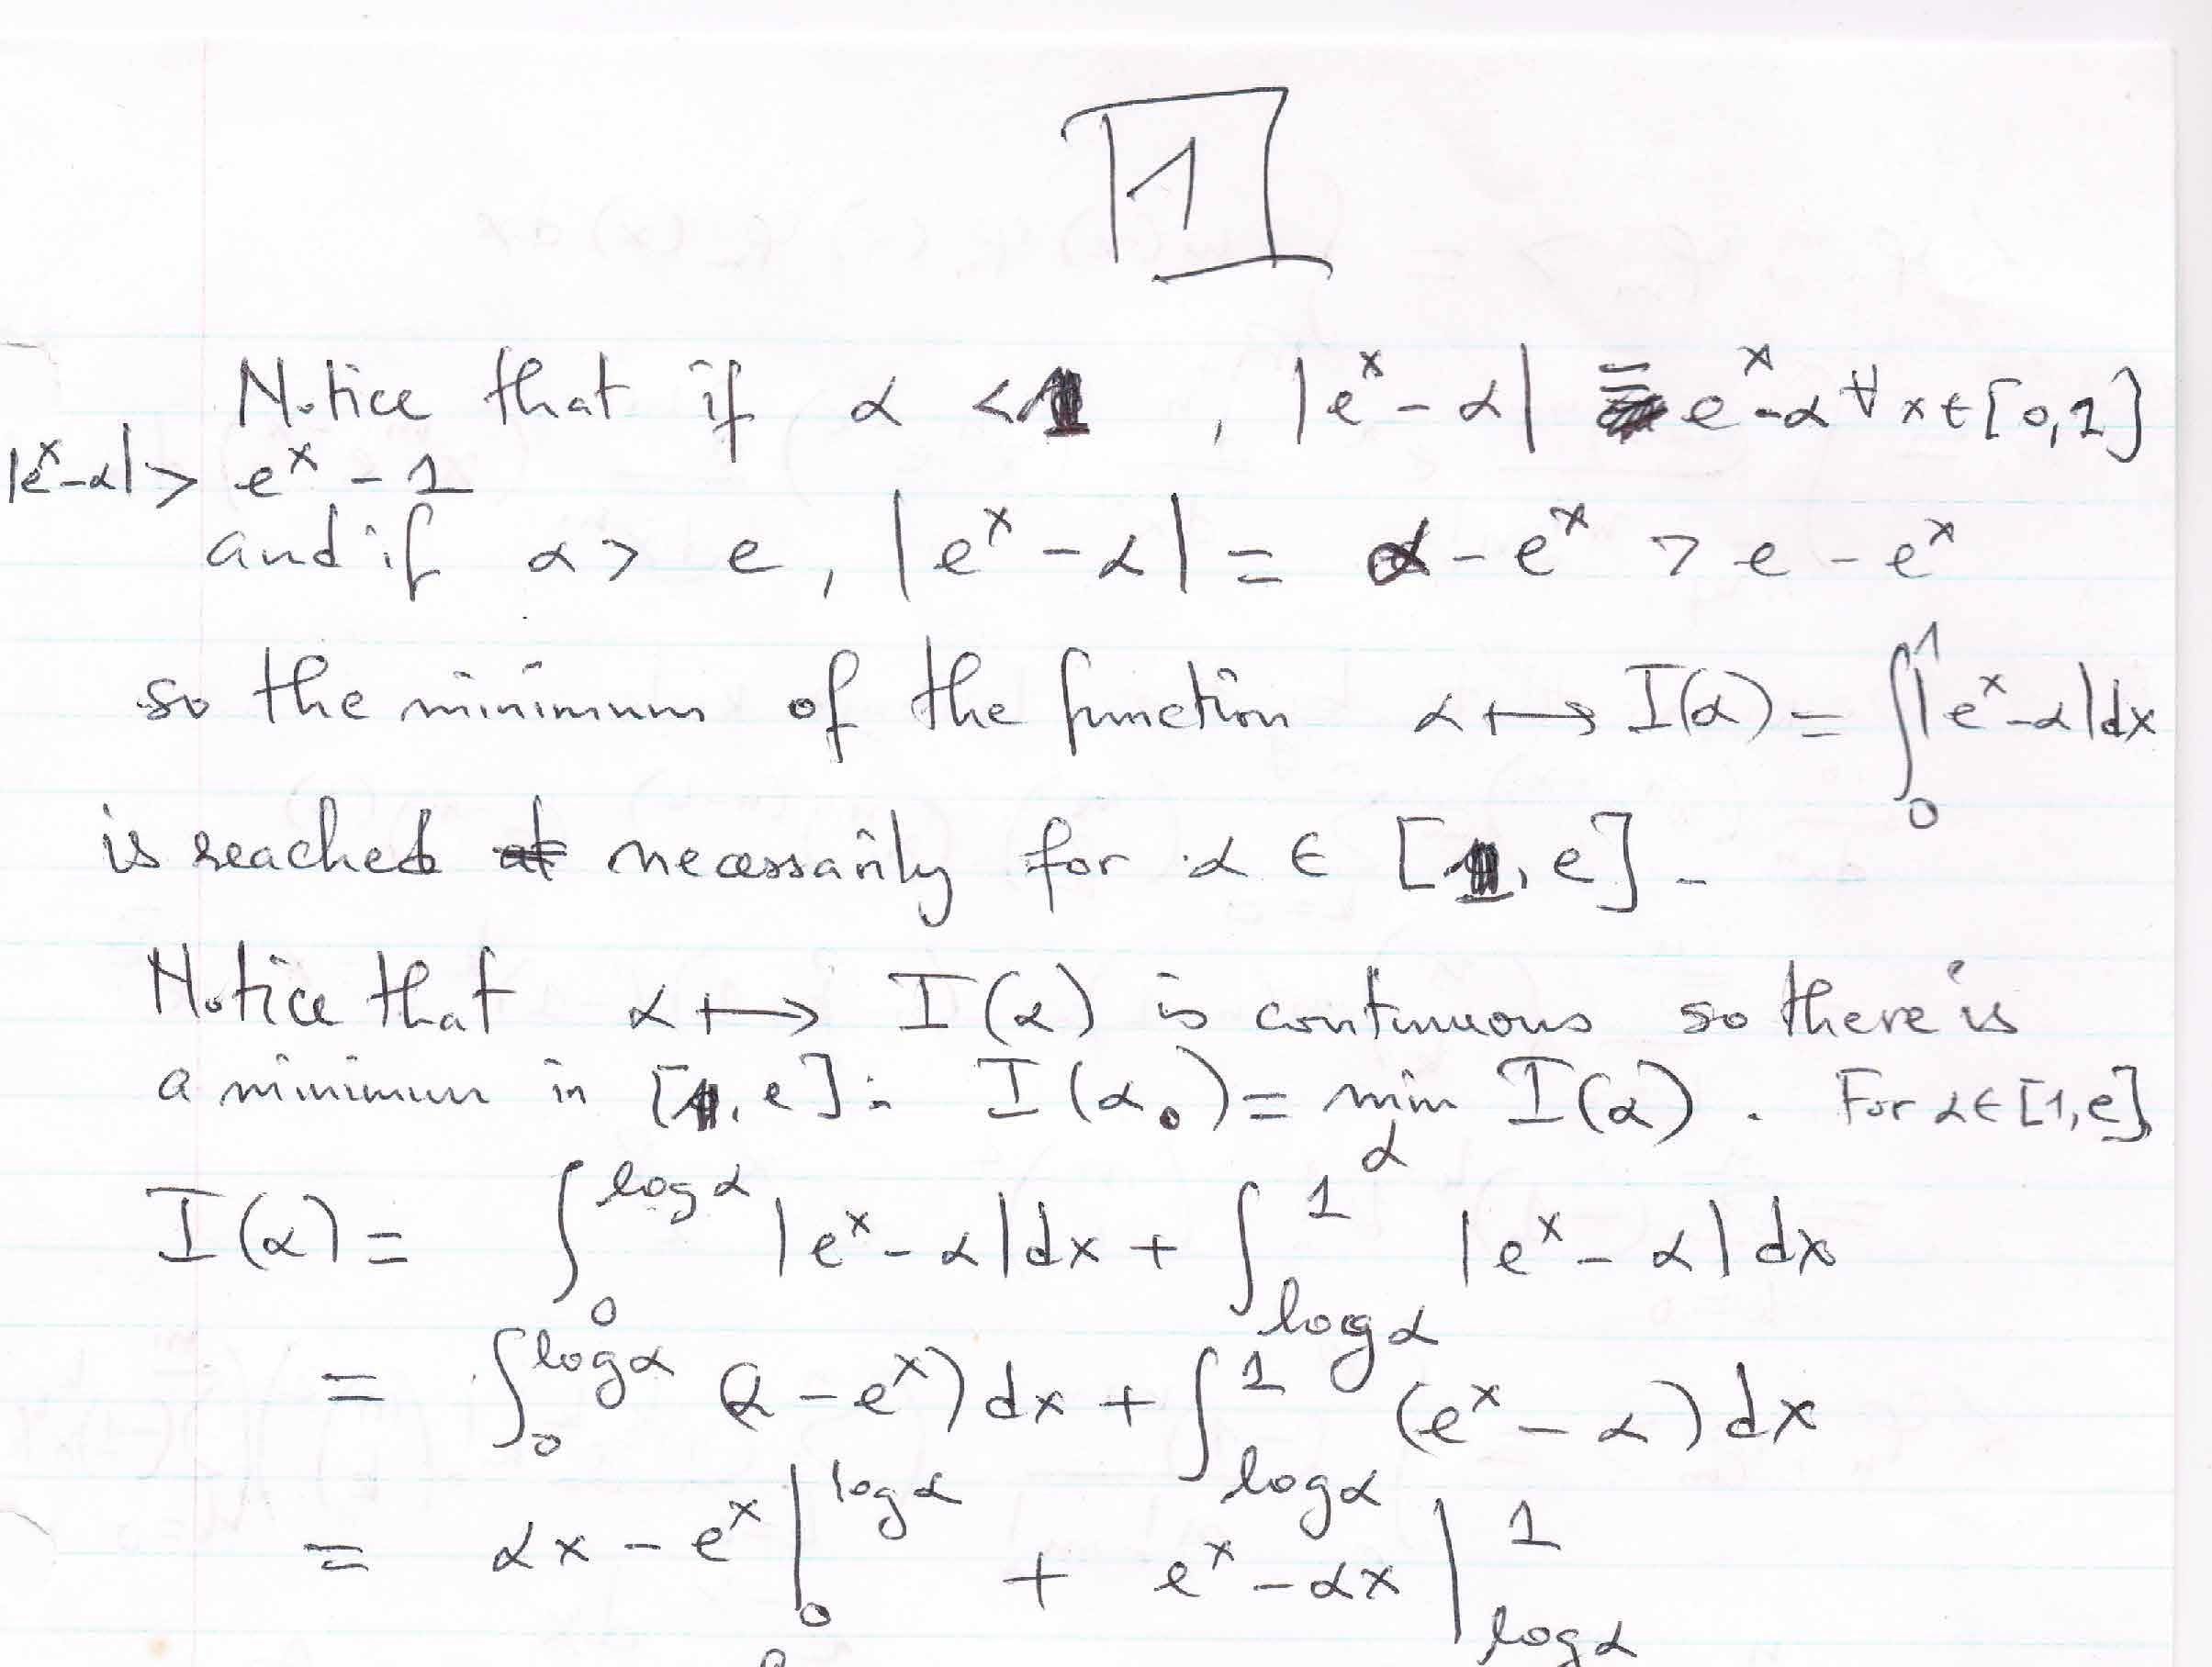 1
Notice that if α < 1, |e^x - α| = e^x - α ∀ x ∈ [0,1]
|e^x - α| > e^x - 1
and if α > e, |e^x - α| = α - e^x > e - e^x
so the minimum of the function α ↦ I(α) = ∫_0^1 |e^x - α| dx
is reached necessarily for α ∈ [1, e] -
Notice that α ↦ I(α) is continuous so there is
a minimum in [1, e] : I(α_0) = min_α I(α). For α ∈ [1, e]
I(α) = ∫_0^{log α} |e^x - α| dx + ∫_{log α}^1 |e^x - α| dx
= ∫_0^{log α} (α - e^x) dx + ∫_{log α}^1 (e^x - α) dx
= αx - e^x |_0^{log α} + e^x - αx |_{log α}^1